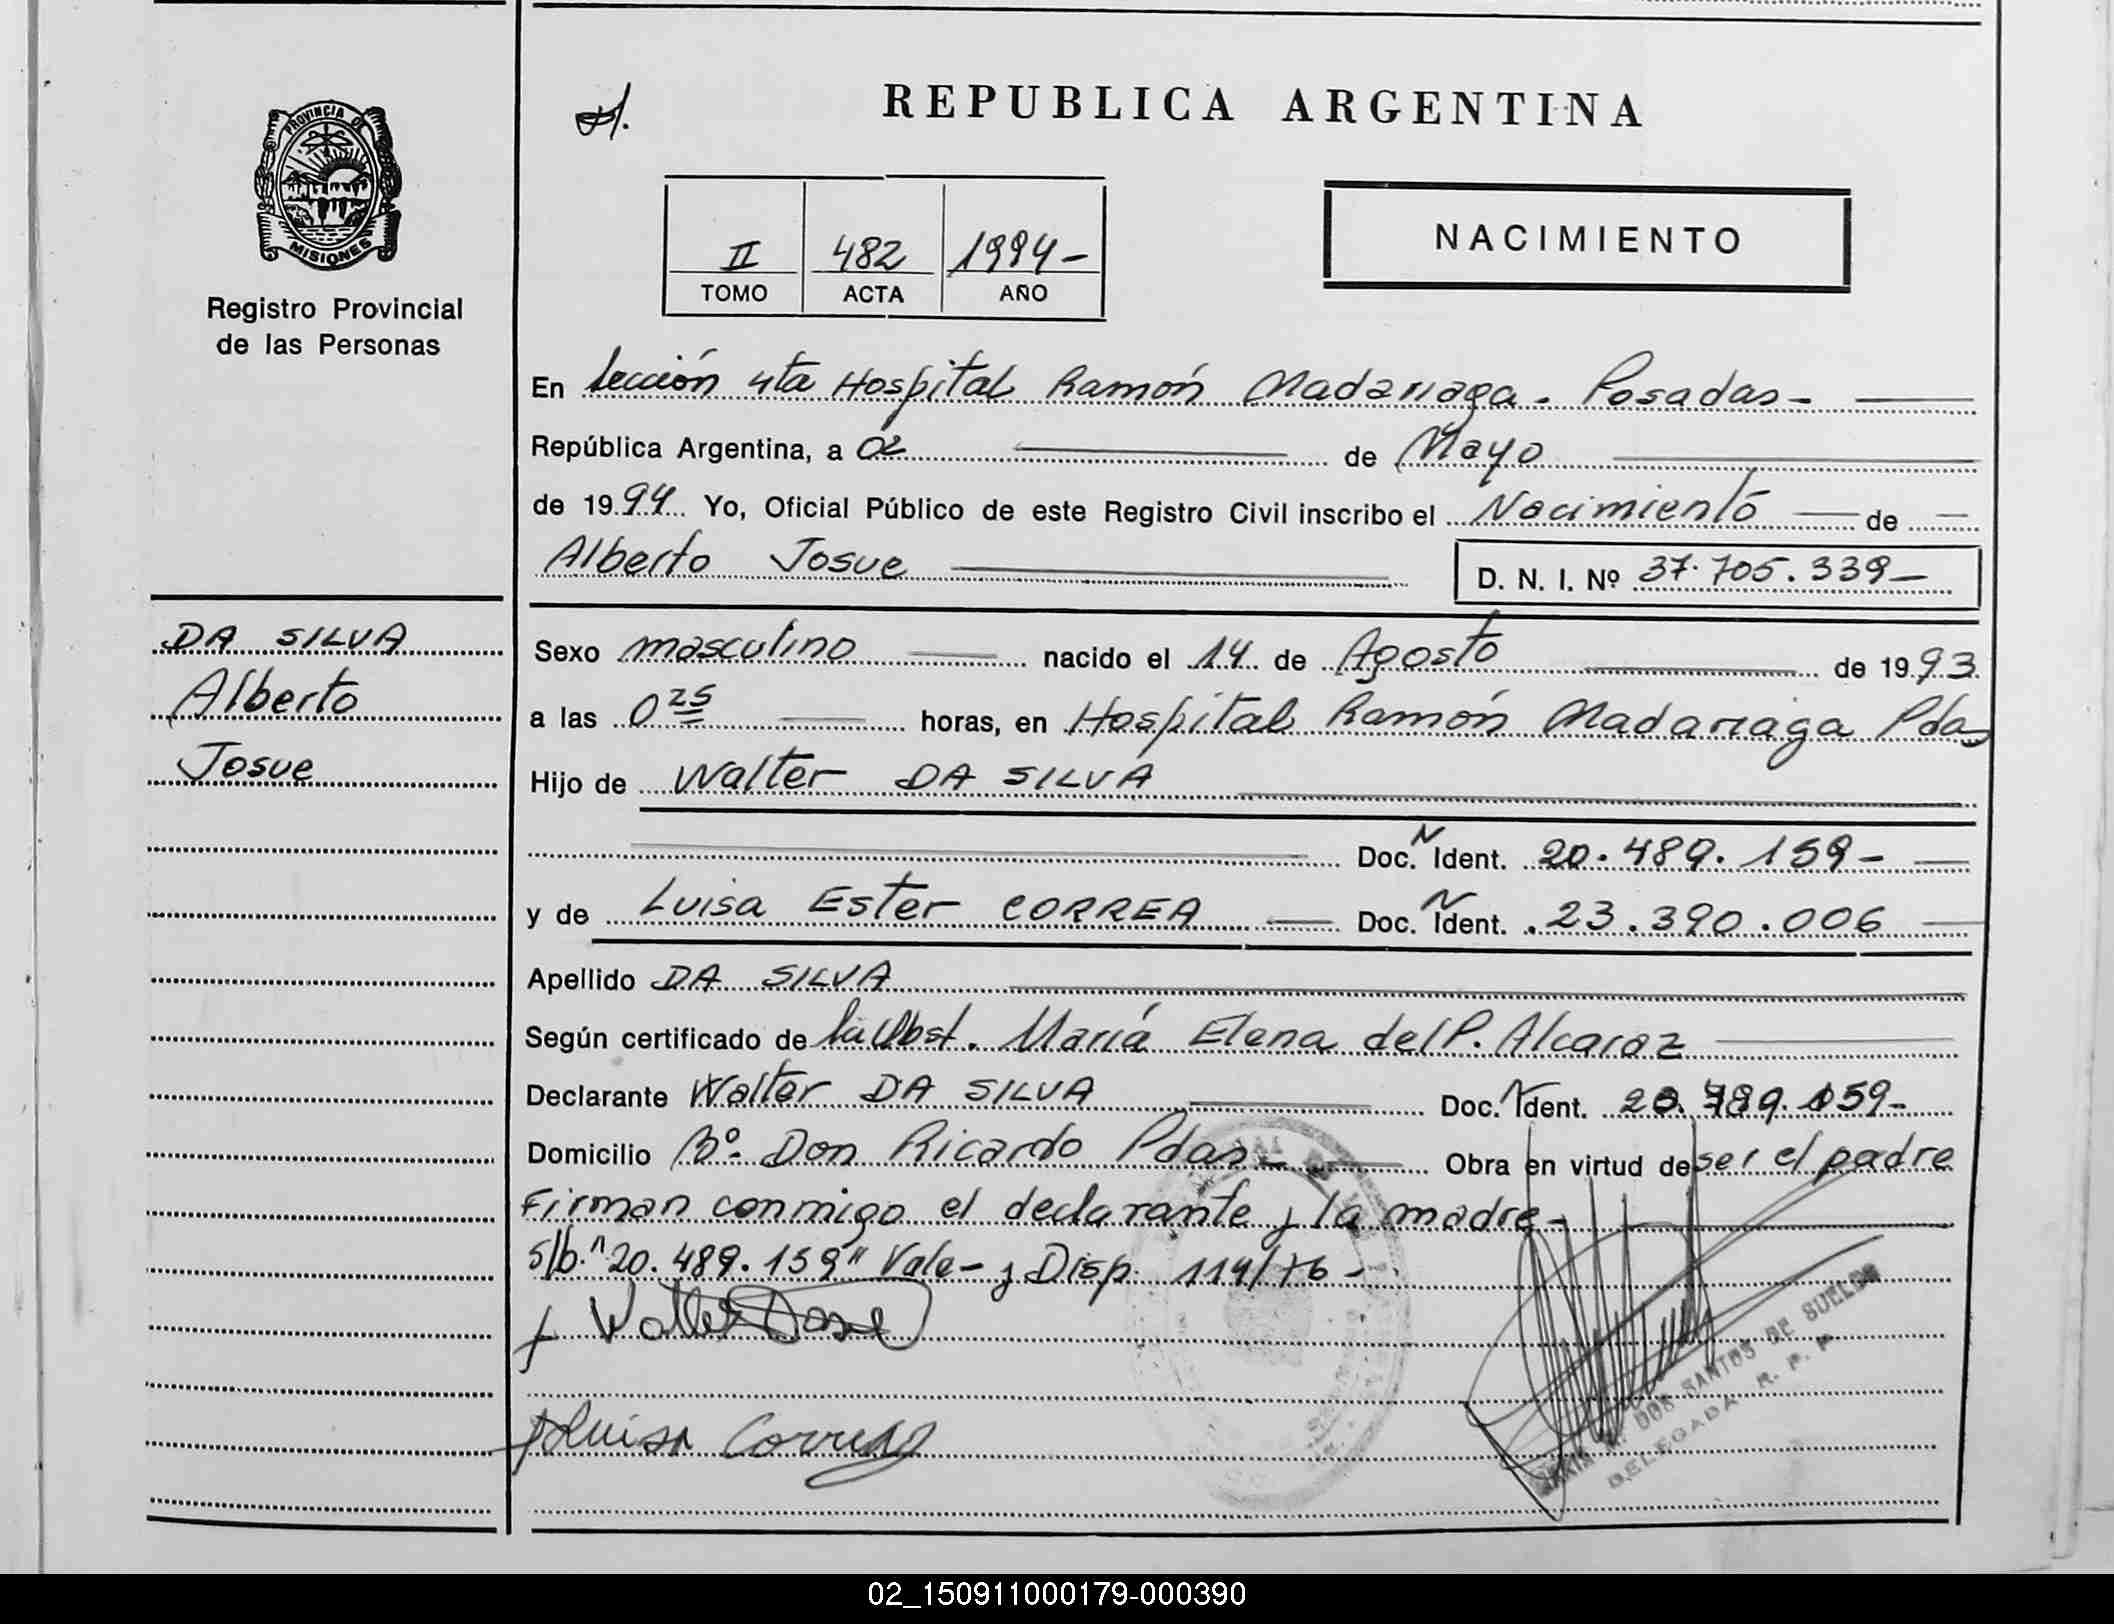 REPUBLICA ARGENTINA
PROVINCIA DE
MISIONES
Registro Provincial
de las Personas
II 482 1994-
TOMO ACTA AÑO
NACIMIENTO
En Sección 4ta Hospital Ramón Madariaga - Posadas -
República Argentina, a 02 de Mayo
de 1994 Yo, Oficial Público de este Registro Civil inscribo el Nacimiento de
Alberto Josue D. N. I. Nº 37.705.339-
DA SILVA
Alberto
Josue
Sexo masculino nacido el 14 de Agosto de 1993
a las 0 25 horas, en Hospital Ramón Madariaga Pdas
Hijo de Walter DA SILVA
Doc. N Ident. 20.489.159-
y de Luisa Ester CORREA Doc. N Ident. 23.390.006
Apellido DA SILVA
Según certificado de la Obst. María Elena del P. Alcaraz
Declarante Walter DA SILVA Doc. N Ident. 20.489.159-
Domicilio Bº. Don Ricardo Pdas - Obra en virtud de ser el padre
Firman conmigo el declarante y la madre -
S/b. "20.489.159" Vale - y Disp. 114/76 -
Walter Dasil
Luisa Correa
DOS SANTOS DE SUELDO
DELEGADA R. P. P.
02_150911000179-000390